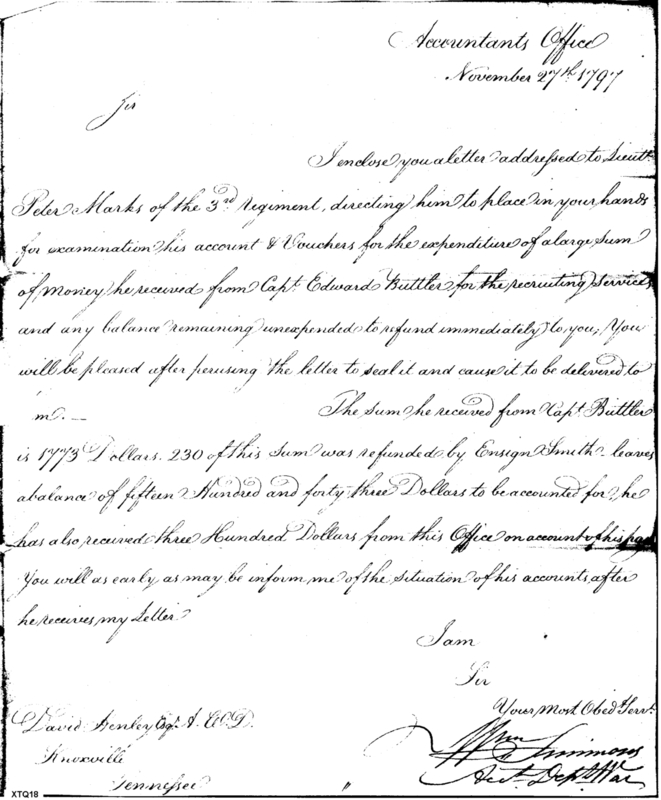 Accountants Office
November 27th 1797
Sir
I enclose you a letter addressed to Lieut.
Peter Marks of the 3rd regiment, directing him to place in your hands
for examination his account & Vouchers for the expenditure of a large sum
of Money he received from Capt. Edward Buttler for the recruiting Service,
and any balance remaining unexpended to refund immediately to you; You
will be pleased after perusing the letter to seal it and cause it to be delivered to
m. —
The sum he received from Capt. Buttler
is 1773 Dollars. 230 of this sum was refunded by Ensign Smith leaves
a balance of fifteen Hundred and forty three Dollars to be accounted for, he
has also received three Hundred Dollars from this Office on account of his pay
You will as early as may be inform me of the situation of his accounts after
he receives my Letter
I am
Sir
Your Most Obed. Servt.
Wm Simmons
Acct. Dept. War
David Henley Esqr. A. W. D.
Knoxville
Tennessee
XTQ18